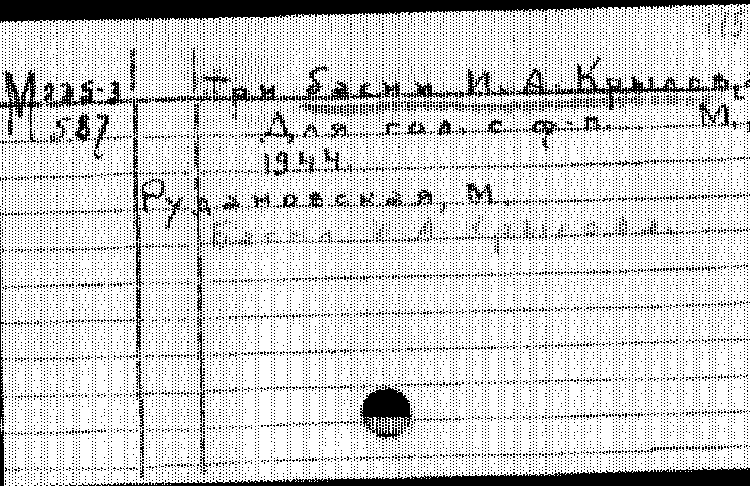 М 225-3 Три басни И. А. Крылова
587 Для гол. с ф-п. М.,
1944.
Рудановская, М.
Басни И. А. Крылова.